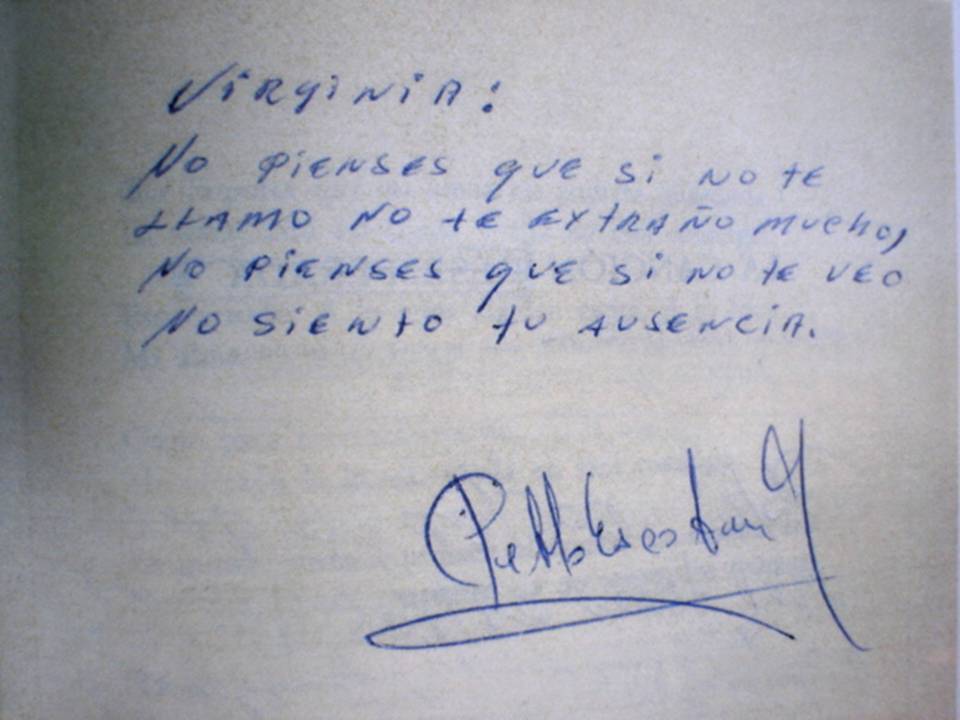 Virginia:
No pienses que si no te
llamo no te extraño mucho,
No pienses que si no te veo
No siento tu ausencia.